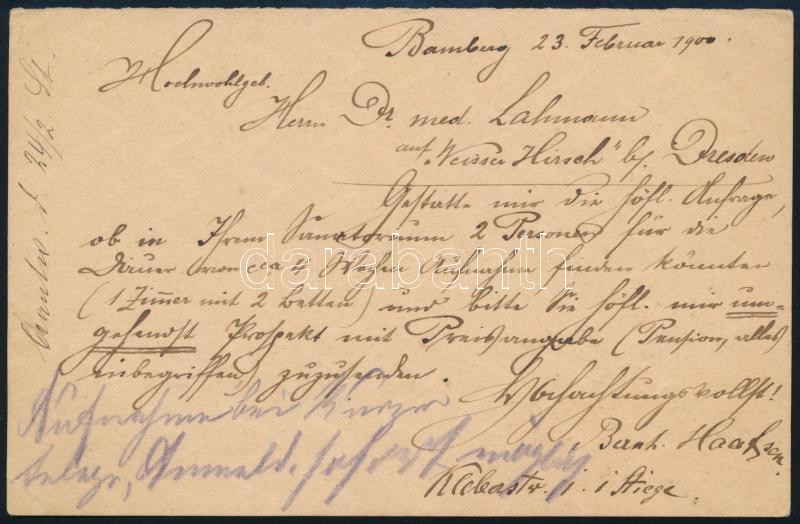 Bamberg 23. Februar 1900.
Hochwohlgeb.
Herrn Dr. med. Lahmann
auf „Weisser Hirsch" b/. Dresden
Gestatte mir die höfl. Anfrage,
ob in Ihrem Sanatorium 2 Personen für die
Dauer von cca Wochen Aufnahme finden könnten
(1 Zimmer mit 2 Betten) und bitte Sie höfl. mir um-
gehendst Prospekt mit Preisangabe (Pension, alles
inbegriffen) zuzusenden.
Hochachtungsvollst!
Haafsen.
i. Stiege.
Aufnahme bei
telegr. Anmeld. sofort möglich
24/2
darabanth